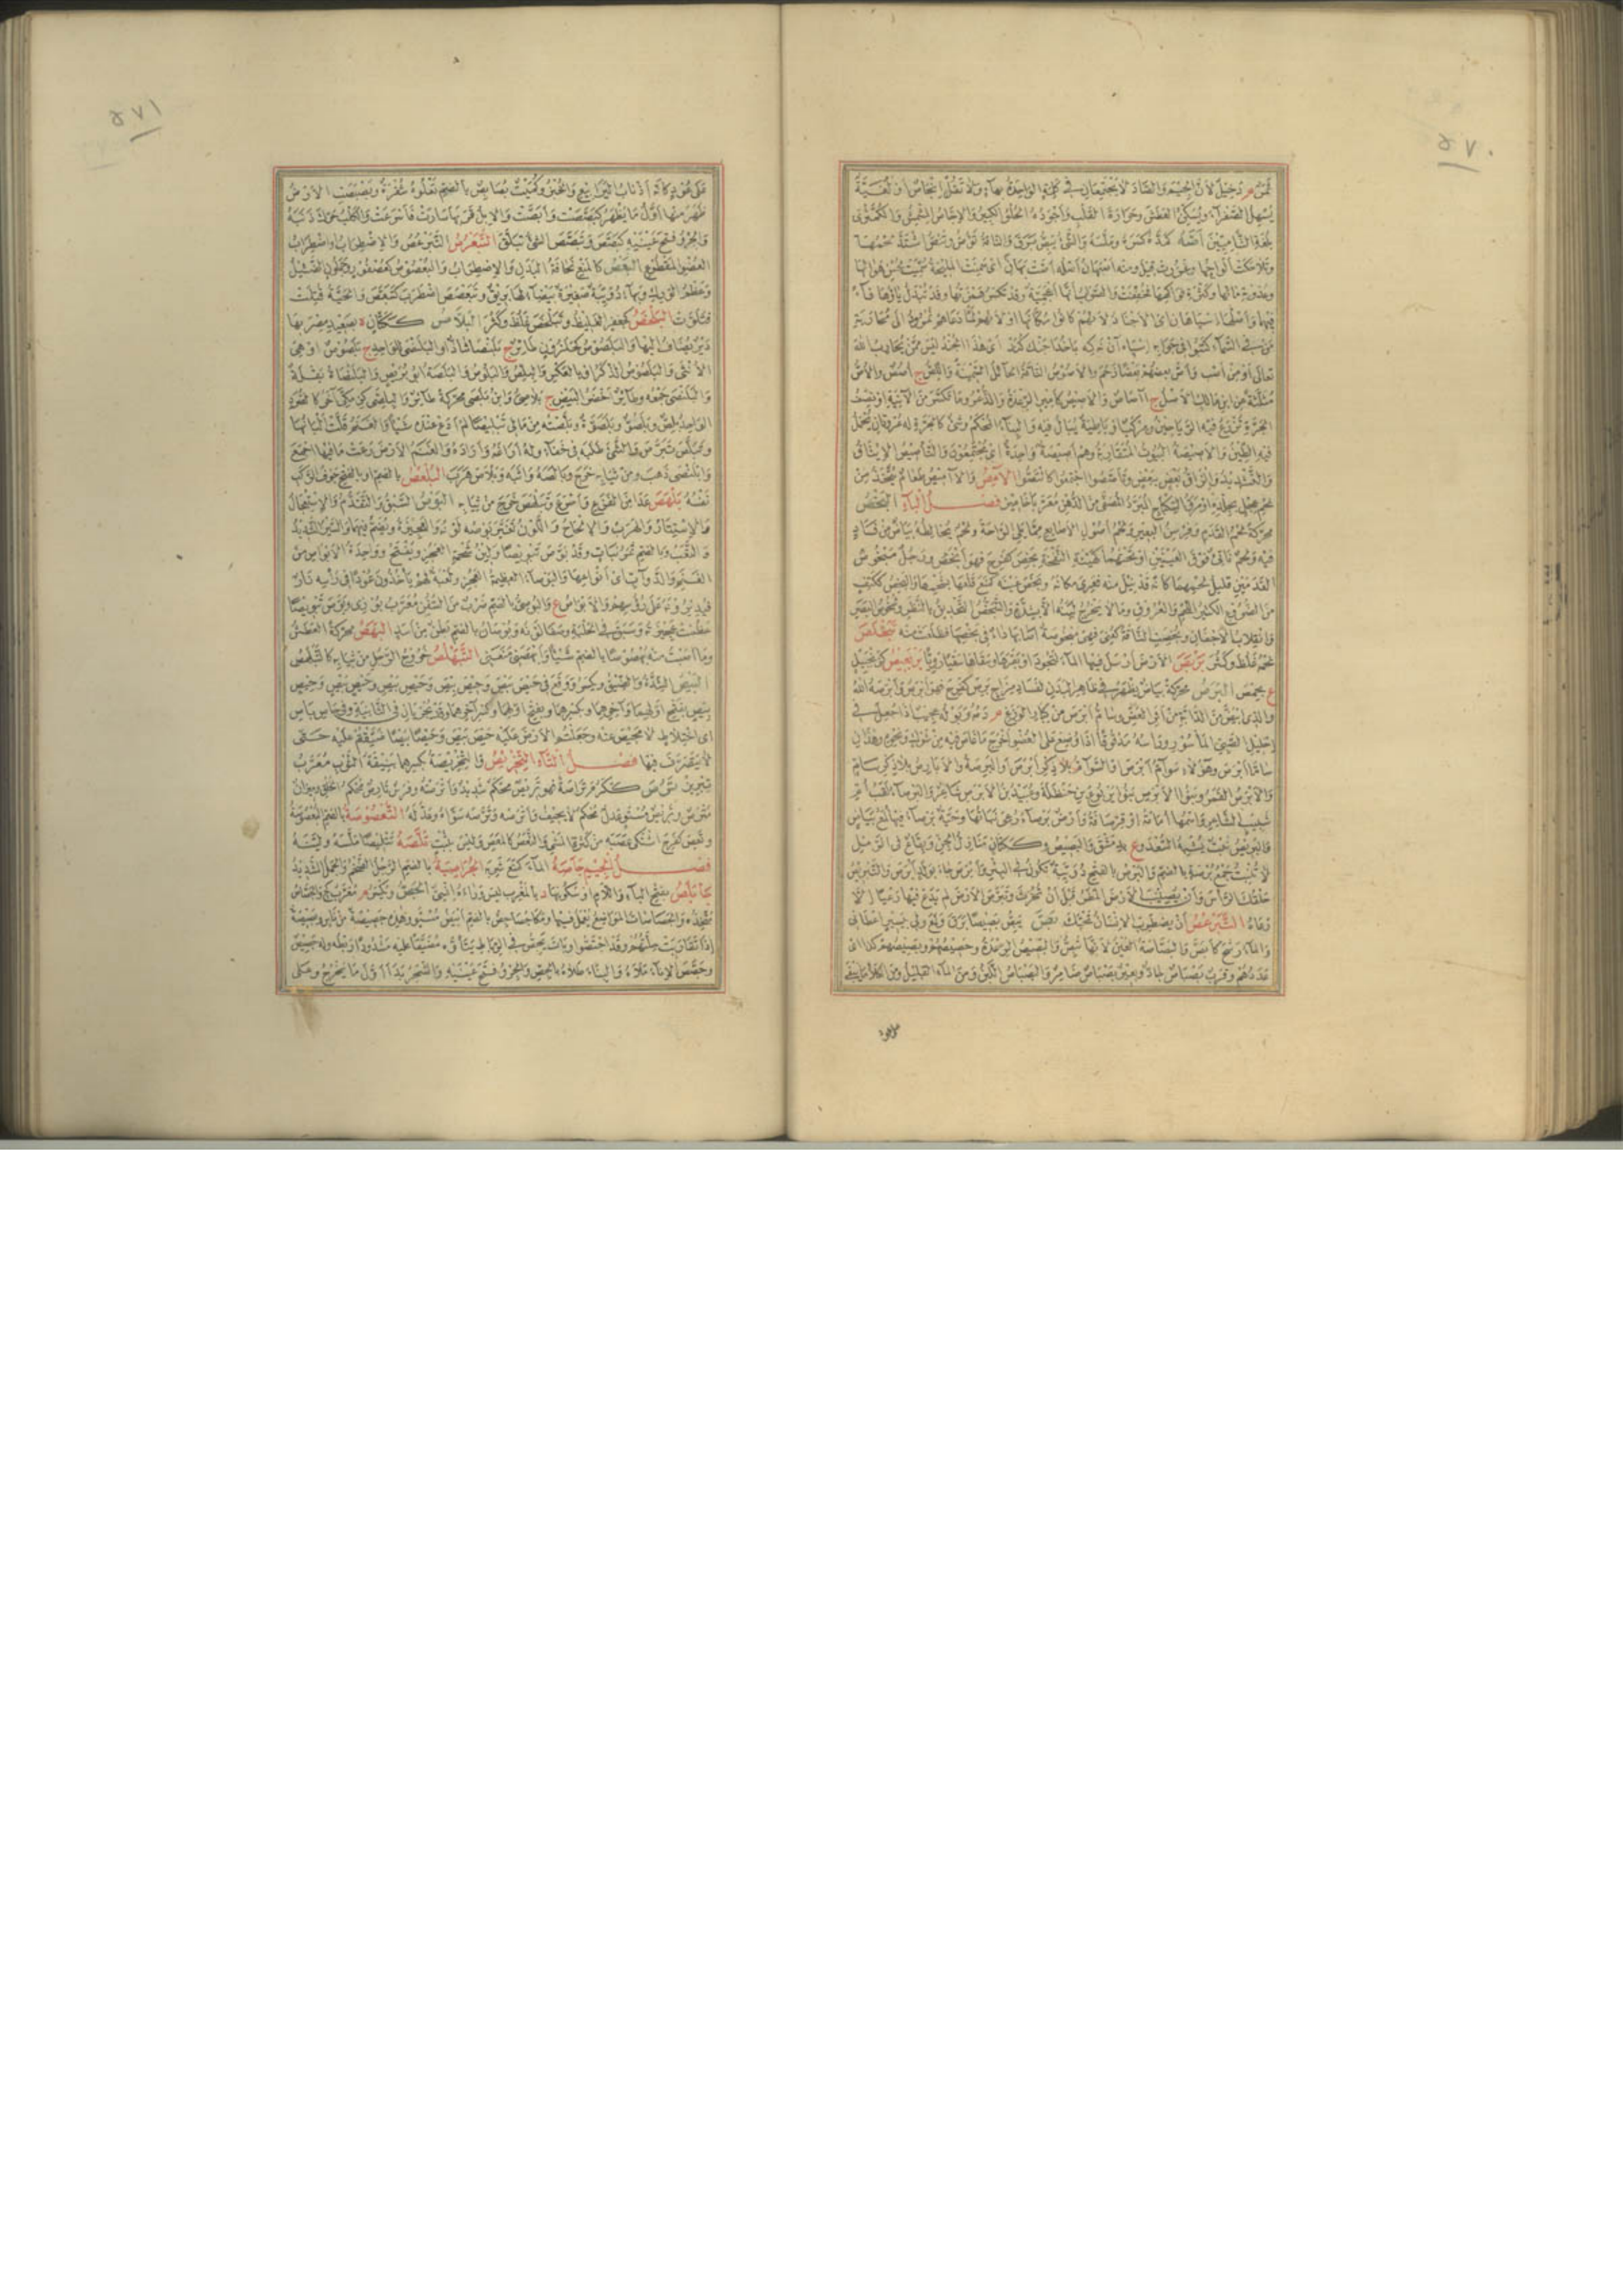 ٥٧٠
ثمر م دخيل لأن الجيم والصاد لا يجتمعان في كلمة الواحدة بهاء ولا تقل إنجاص أو لغية
يسهل الصفراء ويسكن العطش وحرارة القلب وأجوده الحلو الكبير والإجاص المشمش والكمثرى
بلغة الشاميين أصه كمده كسره وملسه والشيء يبص برق والناقة تؤص وتئص اشتد لحمها
وتلاحكت ألواحها وغزرت قيل ومنه أصبهان أصله أصت بهان أي سمنت المليحة سميت لحسن هوائها
وعذوبة مائها وكثرة فواكهها فخففت والصواب أنها أعجمية وقد تكسر همزتها وقد تبدل باؤها فاء
فيهما وأصلها اسپاهان أي الأجناد لأنهم كانوا سكانها أو لأنهم لما دعاهم نمروذ إلى محاربة
من في السماء كتبوا في جوابه اسپاه آن نه كه باخدا جنك كند أي هذا الجند ليس ممن يحارب الله
تعالى أو من أصب وأص بعضهم بعضا زحم والأصوص الناقة الحائل السمينة واللص ج أصص والأص
مثلثة عن ابن مالك الأصل ج آصاص والأصيص كأمير الرعدة والذعر وما تكسر من الآنية أو نصف
الجرة تزرع فيه الرياحين ومركن أو باطية يبال فيه والبناء المحكم وشيء كالجرة له عروتان يحمل
فيه الطين والأصيصة البيوت المتقاربة وهم أصيصة واحدة أي مجتمعون والتأصيص الإيثاق
والتشديد وإلزاق بعض ببعض وتآصصوا اجتمعوا كائتصوا الآمص والآميص طعام يتخذ من
لحم عجل بجلده أو مرق السكباج المبرد المصفى من الدهن معربا خاميز فصل الباء البخص
محركة لحم القدم وفرسن البعير ولحم أصول الأصابع مما يلي الراحة ولحم يخالطه بياض من فساد
فيه ولحم ناتئ فوق العينين أو تحتهما كهيئة النفخة بخص كفرح فهو أبخص ورجل مبخوص
القدمين قليل لحمهما كأنه قد نيل منه فعري مكانه وبخص عينه كمنع قلعها بشحمها والبخص ككتف
من الضروع الكثير اللحم والعروق وما لا يخرج لبنه إلا بشدة والتبخص التحديق بالنظر وشخوص البصر
وانقلاب الأجفان وبخصت الناقة كعني فهي مبخوصة أصابها داء في بخصها فظلعت منه تبخلص
لحمه غلظ وكثر بربص الأرض أرسل فيها الماء لتجود أو بقرها وسقاها سقيا رويا بربعيص كزنجبيل
ع بحمص البرص محركة بياض يظهر في ظاهر البدن لفساد مزاج برص كفرح فهو أبرص وأبرصه الله
والذي ابيض من الدابة من أثر العض وسام أبرص من كبار الوزغ م دمه وبوله عجيب إذا جعل في
إحليل الصبي المأسور ورأسه مدقوقا إذا وضع على العضو أخرج ما غاص فيه من شوك ونحوه وهذان
ساما أبرص وهؤلاء سوام أبرص أو السوام بلا ذكر أبرص أو البرصة والأبارص بلا ذكر سام
والأبرص القمر وبنو الأبرص بنو يربوع بن حنظلة وعبيد بن الأبرص شاعر والبرصاء لقب أم
شبيب الشاعر واسمها أمامة أو قرصافة وأرض برصاء رعي نباتها وحية برصاء فيها لمع بياض
لا تنبت جمع برصة بالضم والبرص بالفتح دويبة تكون في البئر وأبرص جاء بولد أبرص والتبريص
حلقك الرأس وأن يصيب الأرض المطر قبل أن تحرث وتبرص الأرض لم يدع فيها رعيا إلا
رعاه التبرعص أن يضطرب الإنسان تحتك بص يبص بصيصا برق ولمع ولي بيسير أعطاني
والماء رشح كبض والبصاصة العين لأنها تبص والبصيص الرعدة وحصيصهم وبصيصهم كذا أي
عددهم وقرب بصباص جاد وبعير بصباص ضامر والبصباص اللبن ومن الماء القليل ومن الكلأ ما يبقى
٥٧١
على عود كأنه أذناب اليرابيع والخبز وكميت بصابص بالضم تعلوه شقرة وبصبصت الأرض
ظهر منها أول ما يظهر كبصصت وأبصت والإبل قربها سارت فأسرعت والكلب حرك ذنبه
والجرو فتح عينيه كبصص وتبصص الشيء تبلق التبعرص التبرعص والاضطراب واضطراب
العضو المقطوع البعص كالمنع نحافة البدن والاضطراب والبعصوص كعصفور وحلزون الضئيل
وعظم الورك وبهاء دويبة صغيرة بيضاء لها بريق وتبعصص اضطرب كتبعص والحية قتلت
فتلوت البلخص كجعفر الغليظ وتبلخص غلظ وكثر البلاص ككتان ة بصعيد مصر بها
دير يضاف إليها والبلصوص كحلزون طائر ج بلنصى شاذ أو البلنصى الواحد ج بلصوص أو هي
الأنثى والبلصوص الذكر أو بالعكس والبلص والبلوص والبلصة أبو بريص والبلنصاة بقلة
والبلنصى جمعه وطائر أخضر البيض ج بلاصي
وتبلص تبرص والشيء طلبه في خفاء وله أراغه وأراده والغنم الأرض رعت ما فيها أجمع
وابلنصى ذهب ومن ثيابه خرج وبالصه واثبه وبلأص هرب البلعص بالضم أو بالفتح جوف الركب
نفسه بلهص عدا من الفزع وأسرع وتبلهص خرج من ثيابه البوص السبق والتقدم والاستعجال
والاستتار والهرب والإلحاح واللون تغير بوصه لونه والعجيزة ويضم فيهما والسير الشديد
والتعب وبالضم ثمر نبات وقد بوص تبويصا ولين شحم العجز ويفتح وواحدة الأبواص من
الغنم والدواب أي أنواعها والبوصاء العظيمة العجز ولعبة لهم يأخذون عودا في رأسه نار
فيديرونه على رؤوسهم والأبواص ع والبوصي بالضم ضرب من السفن معرب بوزي وبوص تبويصا
عظمت عجيزته وسبق في الحلبة وصفا لونه وبوصان بالضم بطن من أسد البهص محركة العطش
وما أصبت منه بهصوصا بالضم شيئا وأبهصني منعني التبهلص خروج الرجل من ثيابه كالتبلهص
البيص الشدة والضيق ويكسر ووقع في حيص بيص وحيص بيص وحيص بيص وحيص
بيص بفتح أولهما وآخرهما وبكسرهما وبفتح أولهما وكسر آخرهما وقد يجريان في الثانية وفي حاص باص
أي اختلاط لا محيص عنه وجعلتم الأرض عليه حيص بيص وحيصا بيصا ضيقتم عليه حتى
لا يتصرف فيها فصل التاء التخريص والتخريصة بكسرهما بنيقة الثوب معرب
تيريز ترص ككرم تراصة فهو تريص محكم شديد وأترصته وفرس تارص محكم الخلق وميزان
مترص وتريص مستو عدل محكم لا يحيف وأترصه وترصه سواه وعدله التعصوصة بالضم البعصوصة
وتعص كفرح اشتكى عصبه من كثرة المشي والتعص كالمعص وليس بثبت تلصه تتليصا ملسه ولينه
فصل الجيم جأصه الماء كمنع شربه الجرامصية بالضم الرجل الضخم والجمل الشديد
جابلص بفتح الباء واللام أو سكونها د بالمغرب ليس وراءه إنسي الجص ويكسر م معرب كج والجصاص
متخذه والجصاصات المواضع يعمل فيها ومكان جصاجص بالضم أبيض مستو وهذه جصيصة من ناس وبصيصة
إذا تقاربت حلتهم وقد اجتصوا وبات يجص في الرباط يئن أو مضيقا عليه مشدودا ربطه وله جصيص
وجصص الإناء ملأه والبناء طلاه بالجص والجرو فتح عينيه والشجر بدا أول ما يخرج وعلى